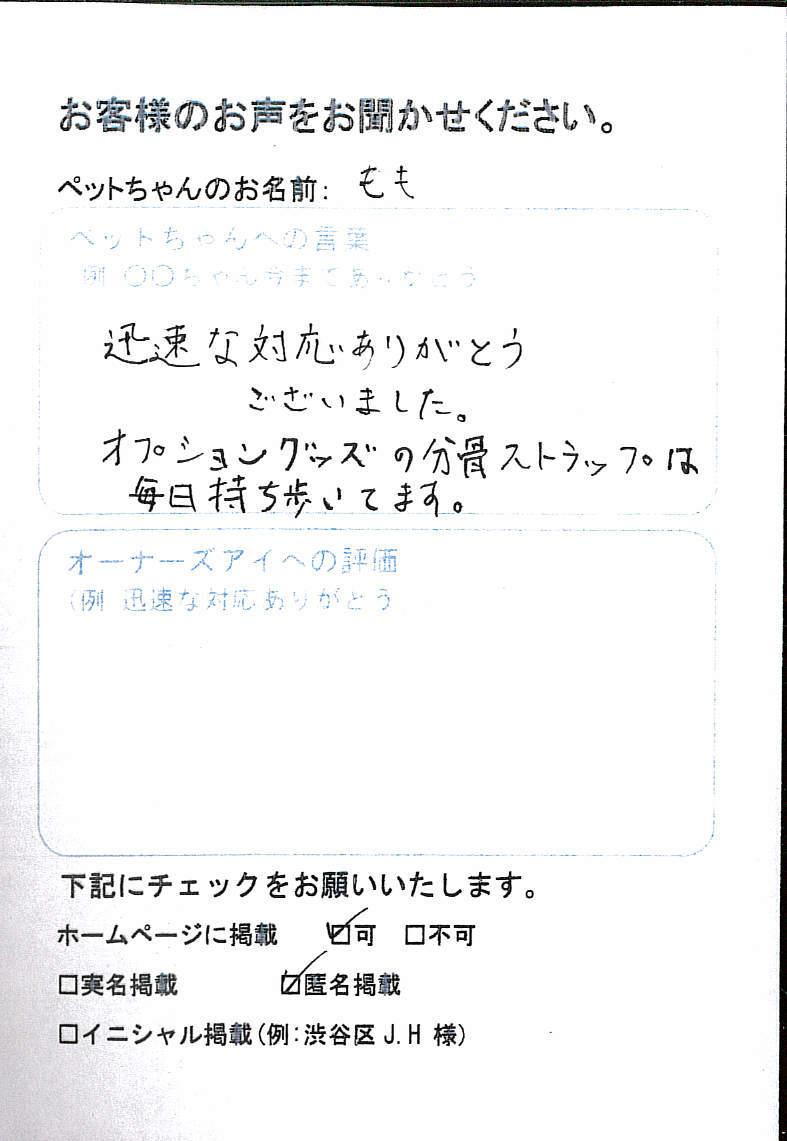 お客様のお声をお聞かせください。
ペットちゃんのお名前: もも
ペットちゃんへの言葉
例 〇〇ちゃん今までありがとう
迅速な対応ありがとう
ございました。
オプショングッズの分骨ストラップは
毎日持ち歩いてます。
オーナーズアイへの評価
(例 迅速な対応ありがとう
下記にチェックをお願いいたします。
ホームページに掲載 ☑可 □不可
□実名掲載 ☑匿名掲載
□イニシャル掲載(例:渋谷区 J.H 様)